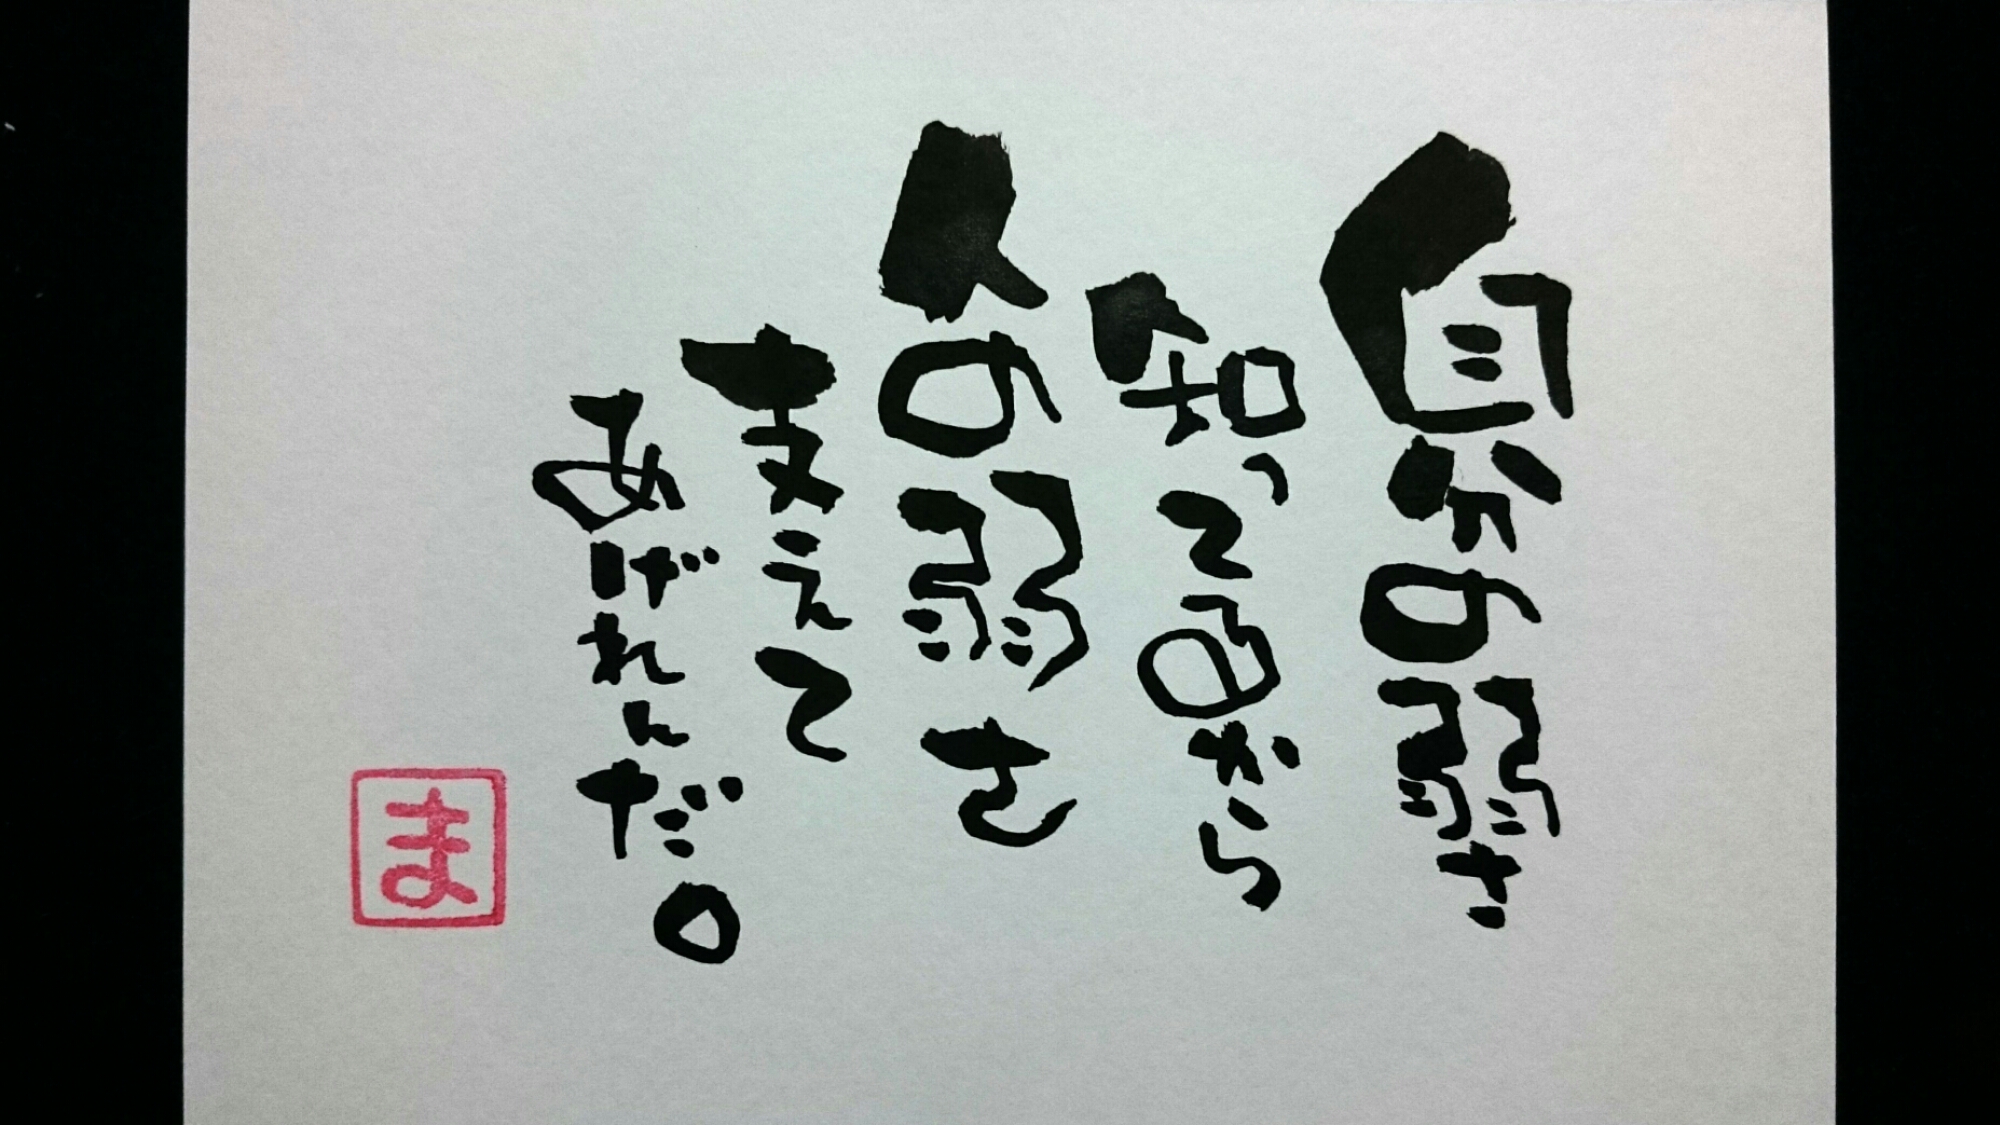 自分の弱さ
知ってるから
人の弱さ
支えて
あげれんだ。
ま